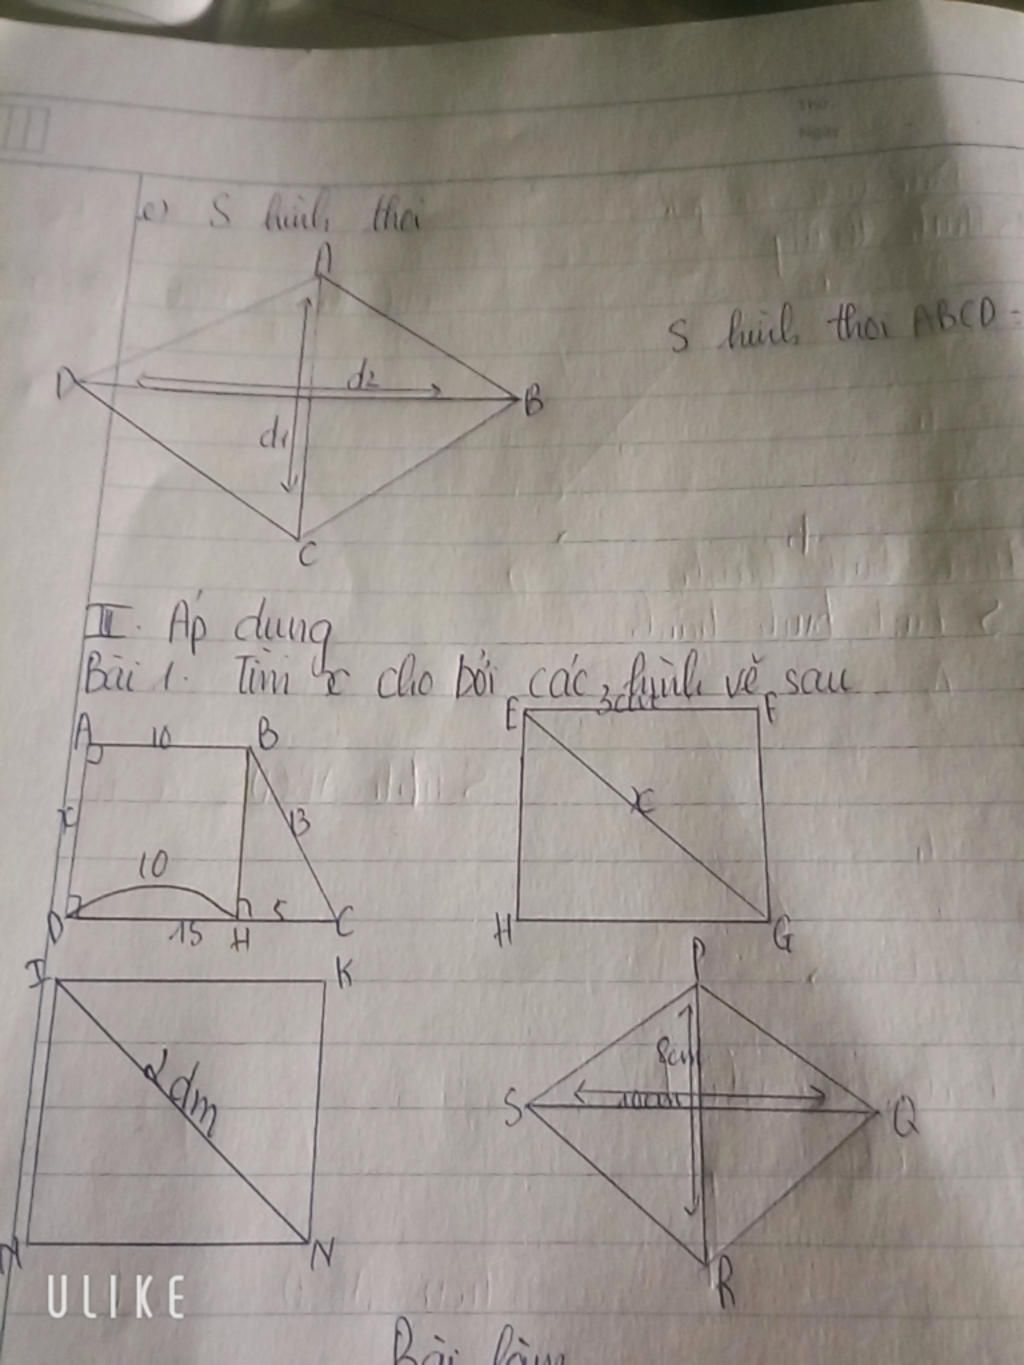 Thứ
Ngày
c) S hình thoi
A
S hình thoi ABCD =
D
d2
B
d1
C
II. Áp dụng
Bài 1. Tìm x cho bởi các hình vẽ sau
A 10 B
E 3cm F
x
13
x
10
D 15 H 5 C
H G
I K
P
2dm
8cm
S 10cm Q
M N
R
ULIKE
Bài làm